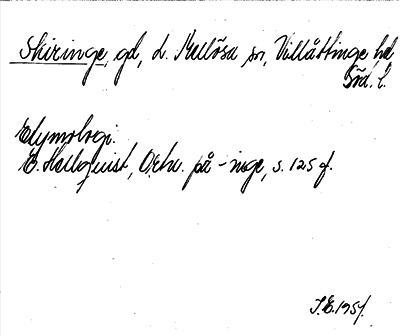 Skiringe, gd, L. Mellösa sn, Villåttinge hd
Söd. l.
Etymologi.
E. Hellquist, Ortn. på -inge, s. 125 f.
I.E. 1951.